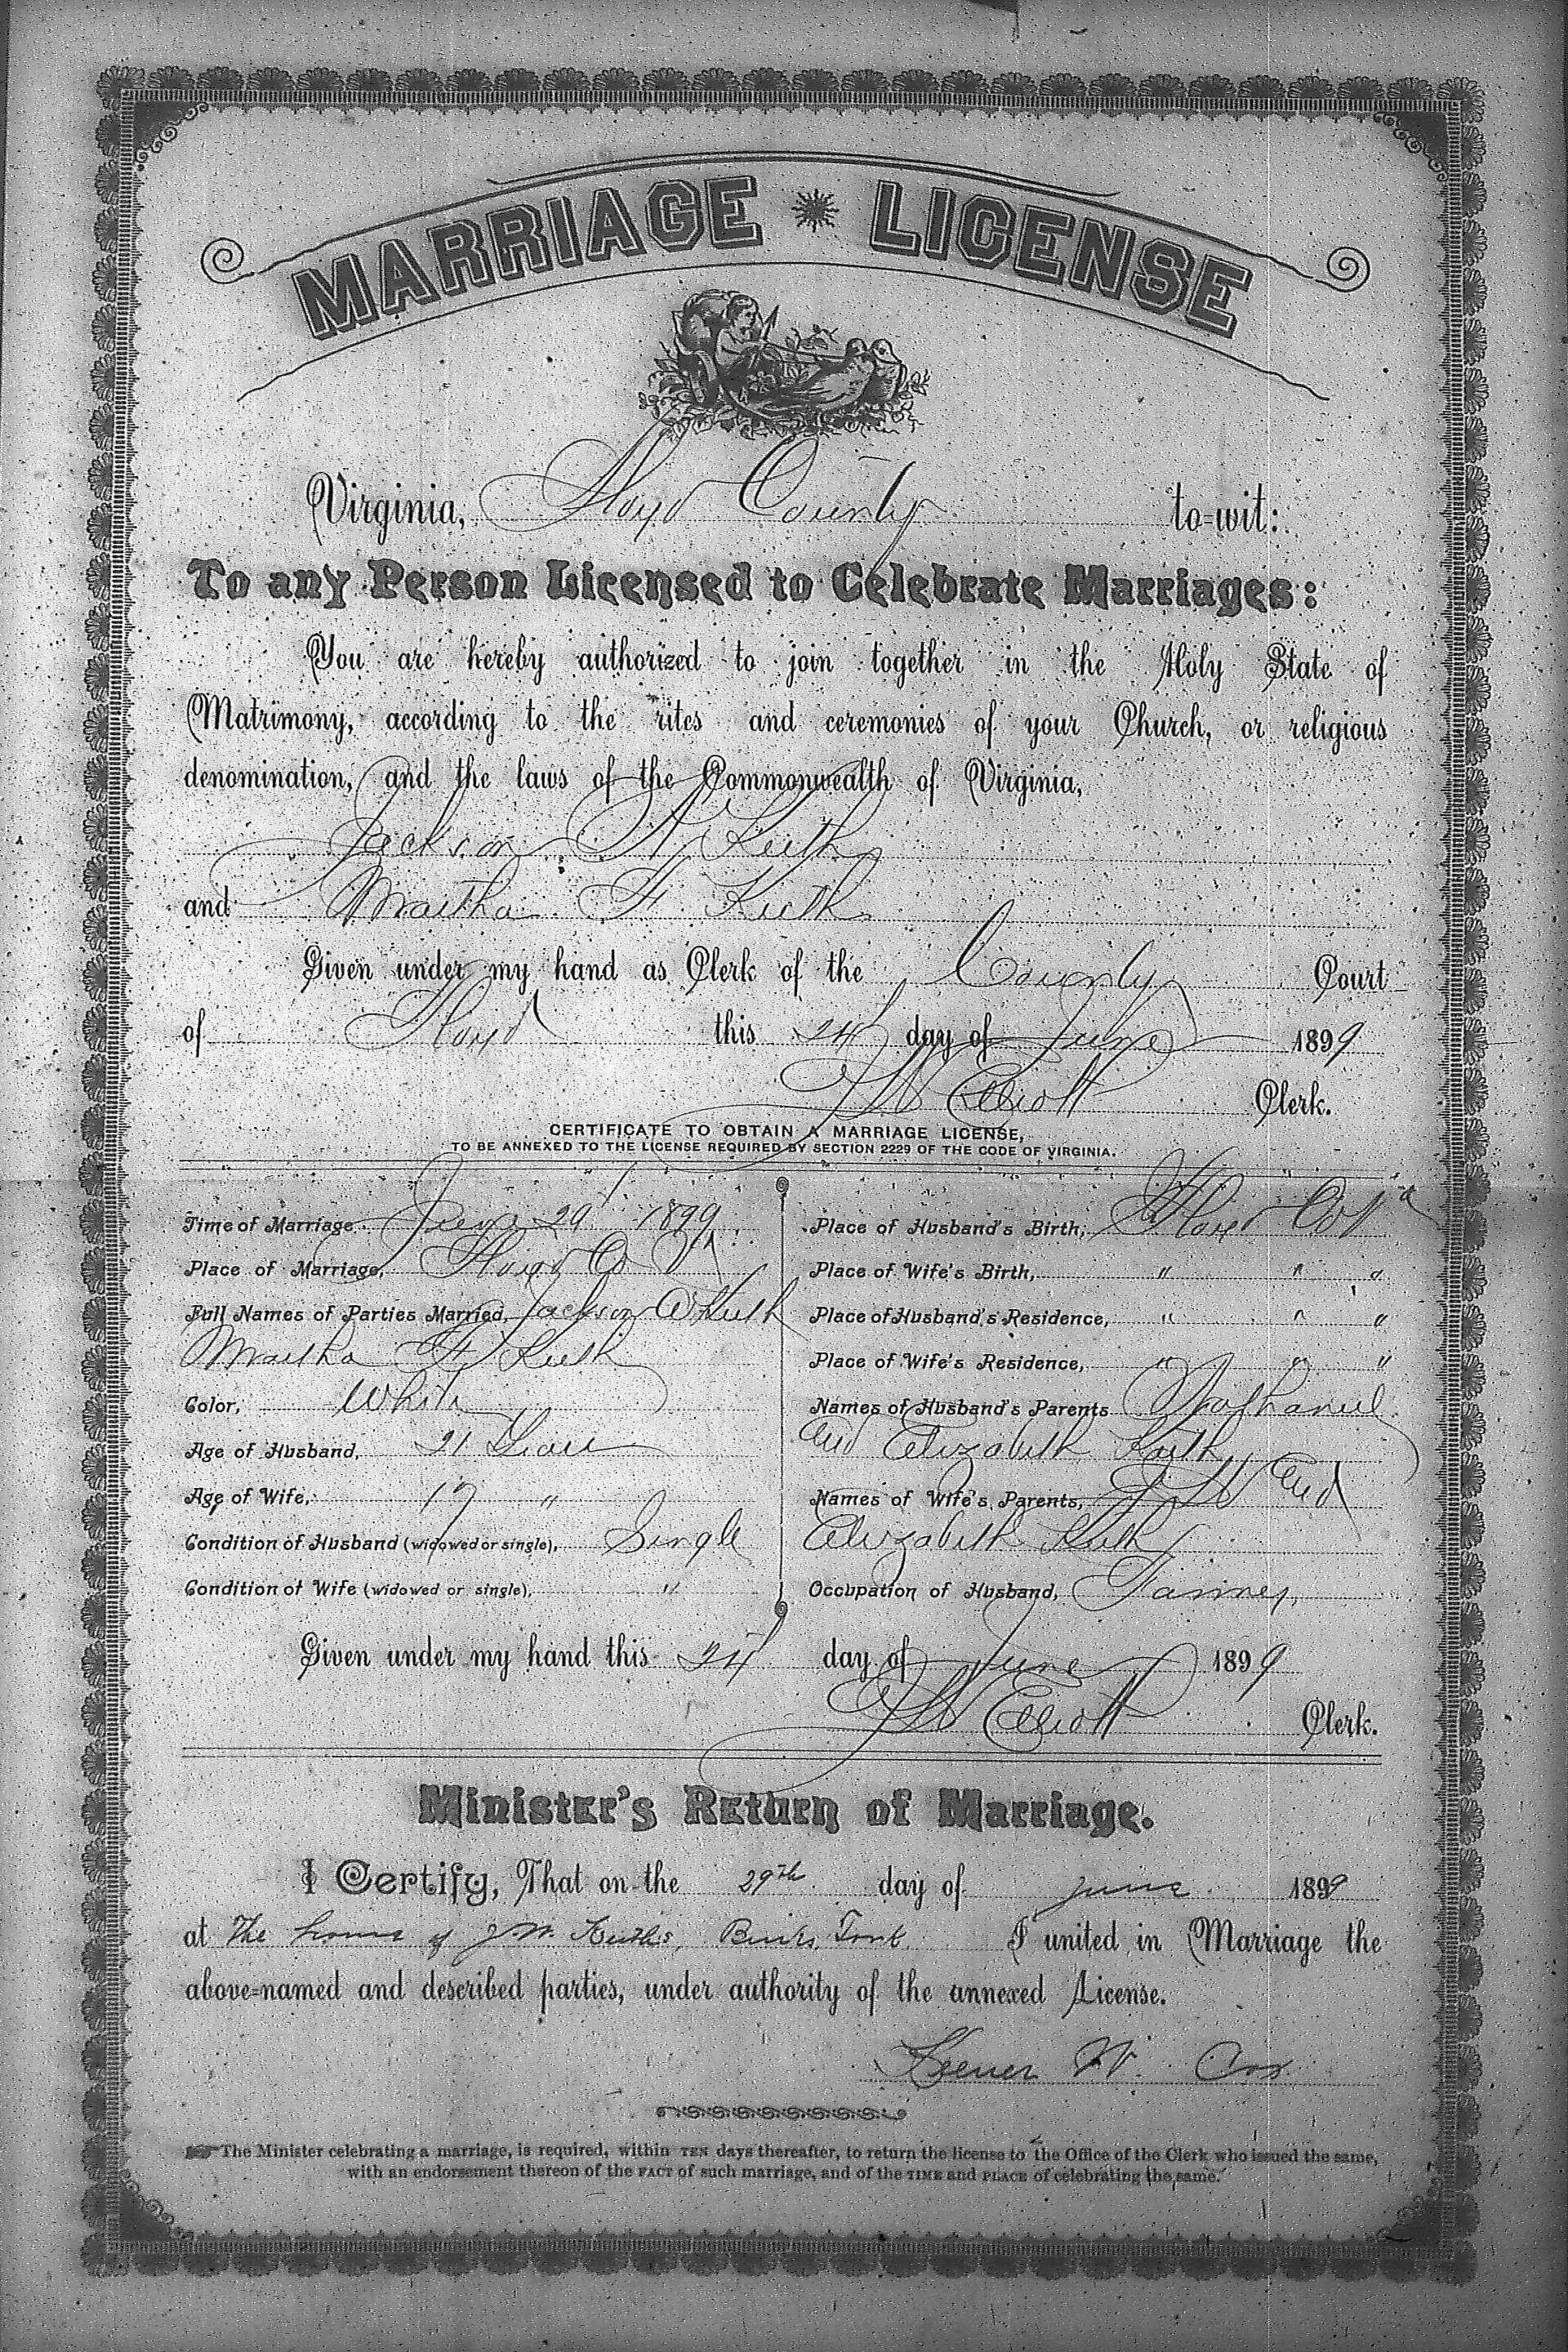 MARRIAGE LICENSE
Virginia, Floyd County to-wit:
To any Person Licensed to Celebrate Marriages:
You are hereby authorized to join together in the Holy State of
Matrimony, according to the rites and ceremonies of your Church, or religious
denomination, and the laws of the Commonwealth of Virginia,
Jackson A. Keith
and Martha F. Keith
Given under my hand as Clerk of the County Court
of Floyd this 24 day of June 1899
Elliott Clerk.
CERTIFICATE TO OBTAIN A MARRIAGE LICENSE,
TO BE ANNEXED TO THE LICENSE REQUIRED BY SECTION 2229 OF THE CODE OF VIRGINIA.
Time of Marriage June 29 1899
Place of Marriage, Floyd Co Va
Full Names of Parties Married, Jackson A Keith
Martha F. Keith
Color, White
Age of Husband, 21 Years
Age of Wife, 17 "
Condition of Husband (widowed or single), Single
Condition of Wife (widowed or single), "
Place of Husband's Birth, Floyd Co Va
Place of Wife's Birth, " " "
Place of Husband's Residence, " " "
Place of Wife's Residence, " " "
Names of Husband's Parents Nathaniel
and Elizabeth Keith
Names of Wife's Parents, J W and
Elizabeth Keith
Occupation of Husband, Farmer,
Given under my hand this 24 day of June 1899
Elliott Clerk.
Minister's Return of Marriage.
I Certify, That on the 29th day of June 1899
at The home of J. W. Keith's, I united in Marriage the
above-named and described parties, under authority of the annexed License.
Keener W. Cox
The Minister celebrating a marriage, is required, within TEN days thereafter, to return the license to the Office of the Clerk who issued the same,
with an endorsement thereon of the FACT of such marriage, and of the TIME and PLACE of celebrating the same.